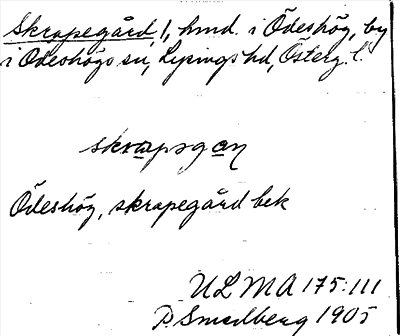 Skrapegård, 1, hmd. i Ödeshög, by
i Ödeshögs sn, Lysings hd, Österg. l.
skrapsgan
Ödeshög, skrapegård bek
ULMA 175:111
P. Smedberg 1905